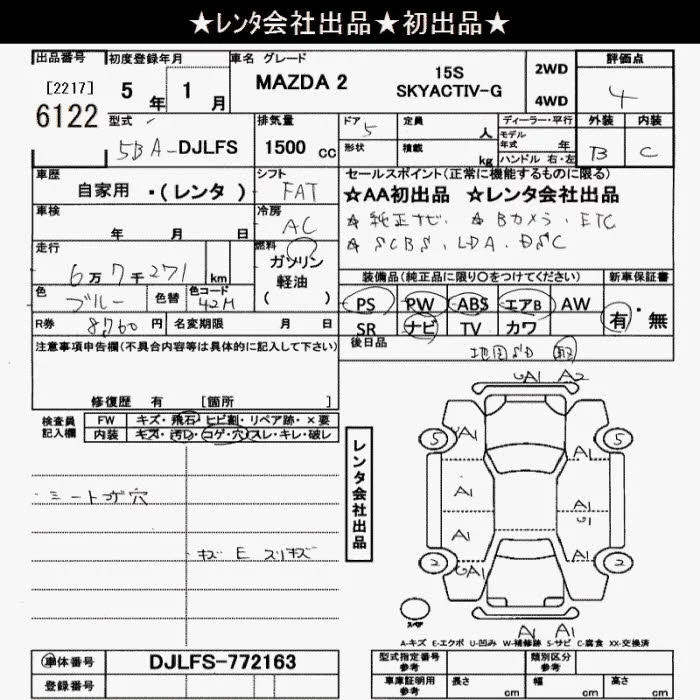 ★レンタ会社出品★初出品★
出品番号 初度登録年月 車名 グレード 評価点
[2217] 5年 1月 MAZDA 2 15S 2WD 4
6122 SKYACTIV-G 4WD
型式 排気量 ドア 定員 ディーラー・平行 外装 内装
5BA-DJLFS 1500 cc 5 人 モデル年式 年 B C
形状 積載 kg ハンドル 右・左
車歴 シフト セールスポイント(正常に機能するものに限る)
自家用 ・(レンタ) FAT ★AA初出品 ★レンタ会社出品
車検 冷房 ★ 純正ナビ. ★ Bカメラ. ETC
年 月 日 AC ★ SCBS. LDA. DSC
走行 燃料 装備品(純正品に限り○をつけてください) 新車保証書
6万7千271 km ガソリン 軽油 ( )
PS PW ABS エアB AW 有・無
色 色替 色コード
ブルー 42M
SR ナビ TV カワ
R券 8760円 名変期限 月 日 後日品
地図SD 取
注意事項申告欄(不具合内容等は具体的に記入して下さい)
修復歴 有 [箇所 ]
検査員記入欄 FW キズ・飛石・ヒビ割・リペア跡・×要
内装 キズ・汚れ・コゲ・穴・スレ・キレ・破レ
シートコゲ穴
キズ E スリキズ
レンタ会社出品
GA1 A2
5 A1 A1 5
A1 A1
A1 G1
2 GA1 A1 2
スペア
A1 A1
A-キズ E-エクボ U-凹み W-補修跡 S-サビ C-腐食 XX-交換済
車体番号 DJLFS-772163 型式指定番号 参考 類別区分 参考
登録番号 車庫証明用 参考 長さ cm 幅 cm 高さ cm